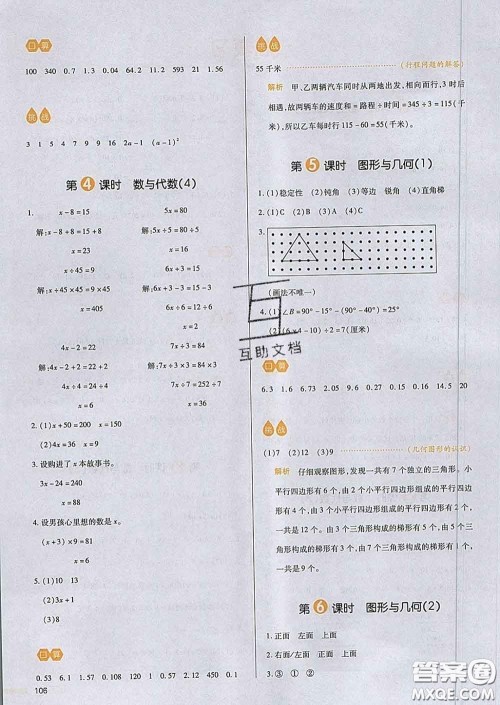 口算
100 340 0.7 1.3 0.04 64.2 11.2 593 21 1.56
挑战
3 1 5 4 7 9 9 16 2a-1 (a-1)²
第4课时 数与代数(4)
1. x-8=15 5x=80
解:x-8+8=15+8 解:5x÷5=80÷5
x=23 x=16
x÷45=9 6x÷3=15
解:x÷45×45=9×45 解:6x÷3×3=15×3
x=405 6x=45
4x-2=22 7x÷3=84
解:4x-2+2=22+2 解:7x÷3×3=84×3
4x=24 7x÷7=252÷7
x=6 x=36
2.(1)x+50=200 x=150
(2)3x=72 x=24
3.设购进了x本故事书。
3x-24=240
x=88
4.设男孩心里想的数是x。
(x+3)×9=81
x=6
5.(1)10 13
(2)3x+1
(3)8
口算
0.53 6.1 0.108 120 1 0.57 12.2 450 0.1
106
挑战
55千米(行程问题的解答)
解析 甲、乙两辆汽车同时从两地出发,相向而行,3时后
相遇,故两辆车的速度和=路程÷时间=345÷3=115(千
米),所以乙车每时行115-60=55(千米)。
第5课时 图形与几何(1)
1.(1)稳定性 (2)钝角 (3)等边 锐角 (4)直角梯
2.(1)C (2)B (3)A
3.
(画法不唯一)
4.(1)∠B=90°-15°-(90°-40°)=25°
(2)(6×4-10)÷2=7(厘米)
互助文档
口算
6.3 1.6 6.73 2.05 9.6 0.27 0.15 0.10 14.5 20
挑战
(1)7 (2)12 (3)9(几何图形的认识)
解析 仔细观察图形,发现一共有7个独立的三角形。小
平行四边形有6个,由2个小平行四边形组成的平行四边
形有4个,由4个小平行四边形组成的平行四边形有2个,
一共是12个。由3个三角形构成的梯形有6个,由5个三
角形构成的梯形有2个,由7个三角形构成的梯形有1个,
一共是9个。
第6课时 图形与几何(2)
1.正面 左面 上面
2.右面/左面 正面 上面
3.③ ① ②
答案圈
MXQE.COM